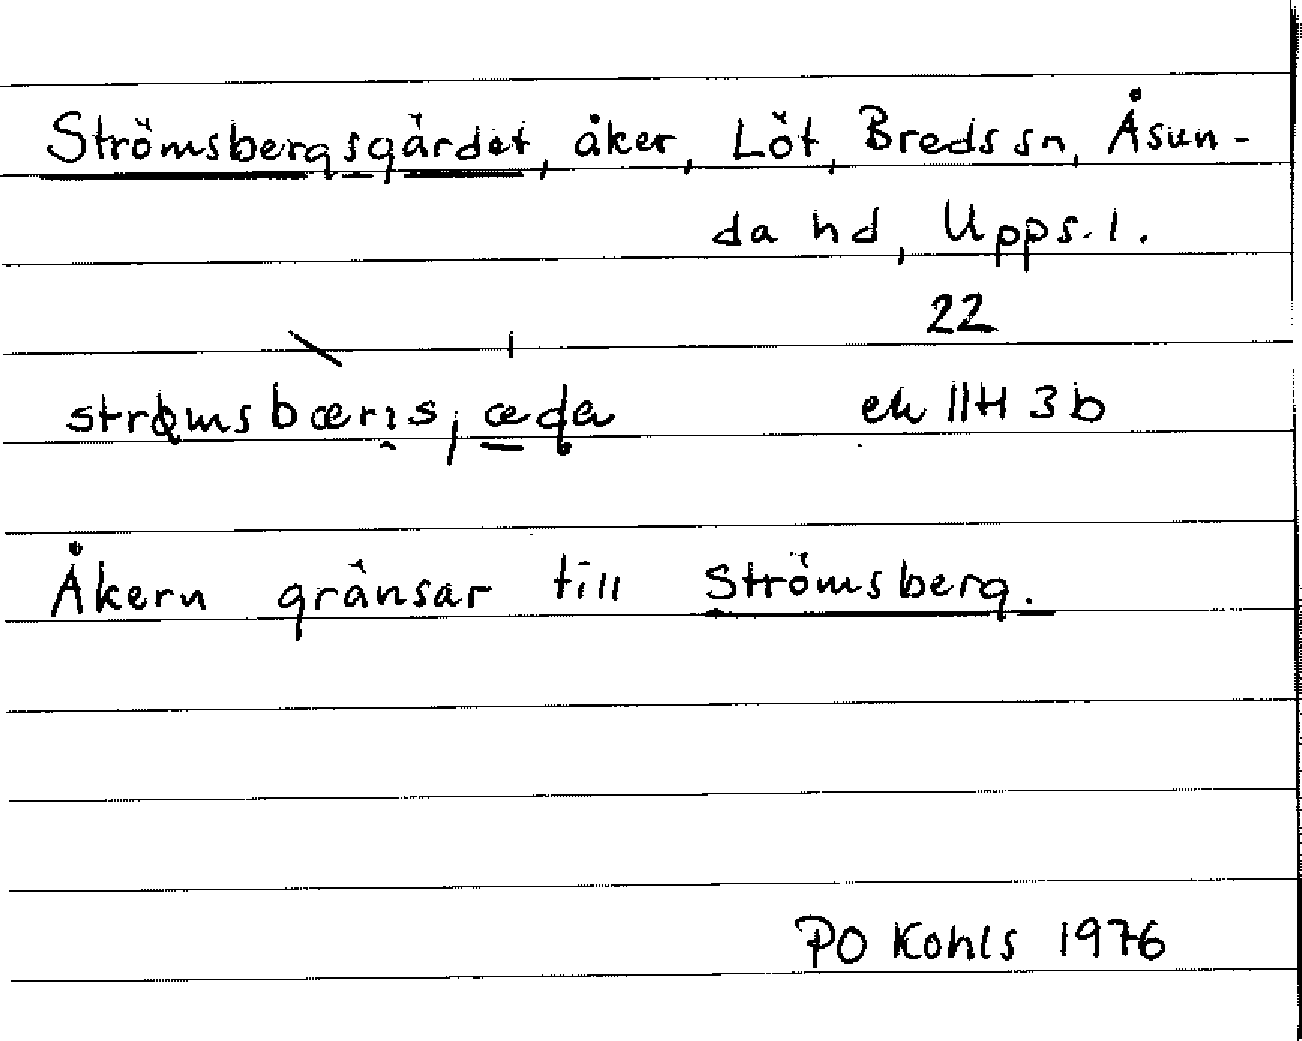 Strömsbergsgärdet, åker, Löt, Breds sn, Åsun-
da hd, Upps. l.
22
ek 11H 3b
Åkern gränsar till Strömsberg.
PO Kohls 1976